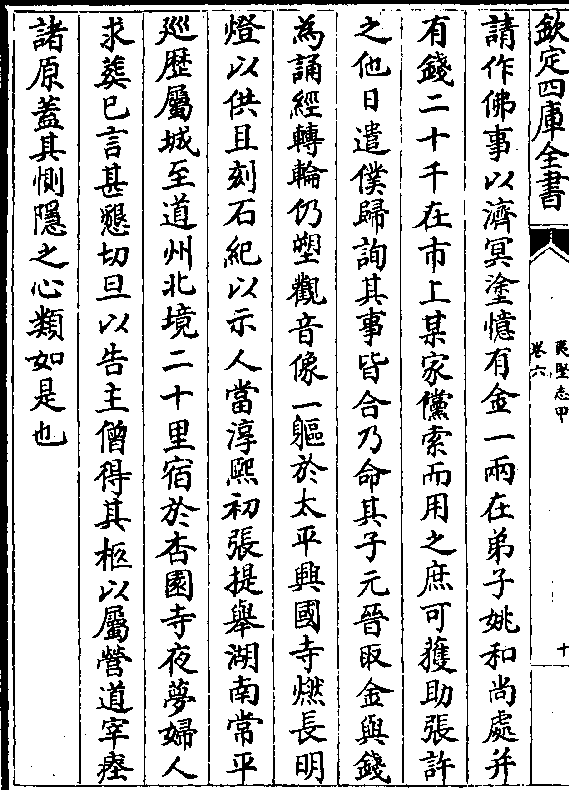 欽定四庫全書
夷堅志甲
卷六
十
請作佛事以濟冥塗憶有金一兩在弟子姚和尚處并
有錢二十千在市上某家儻索而用之庶可獲助張許
之他日遣僕歸詢其事皆合乃命其子元晉取金與錢
為誦經轉輪仍塑觀音像一軀於太平興國寺燃長明
燈以供且刻石紀以示人當淳熙初張提舉湖南常平
廵歴屬城至道州北境二十里宿於杏園寺夜夢婦人
求葬已言甚懇切旦以告主僧得其柩以屬營道宰瘞
諸原蓋其惻隱之心類如是也